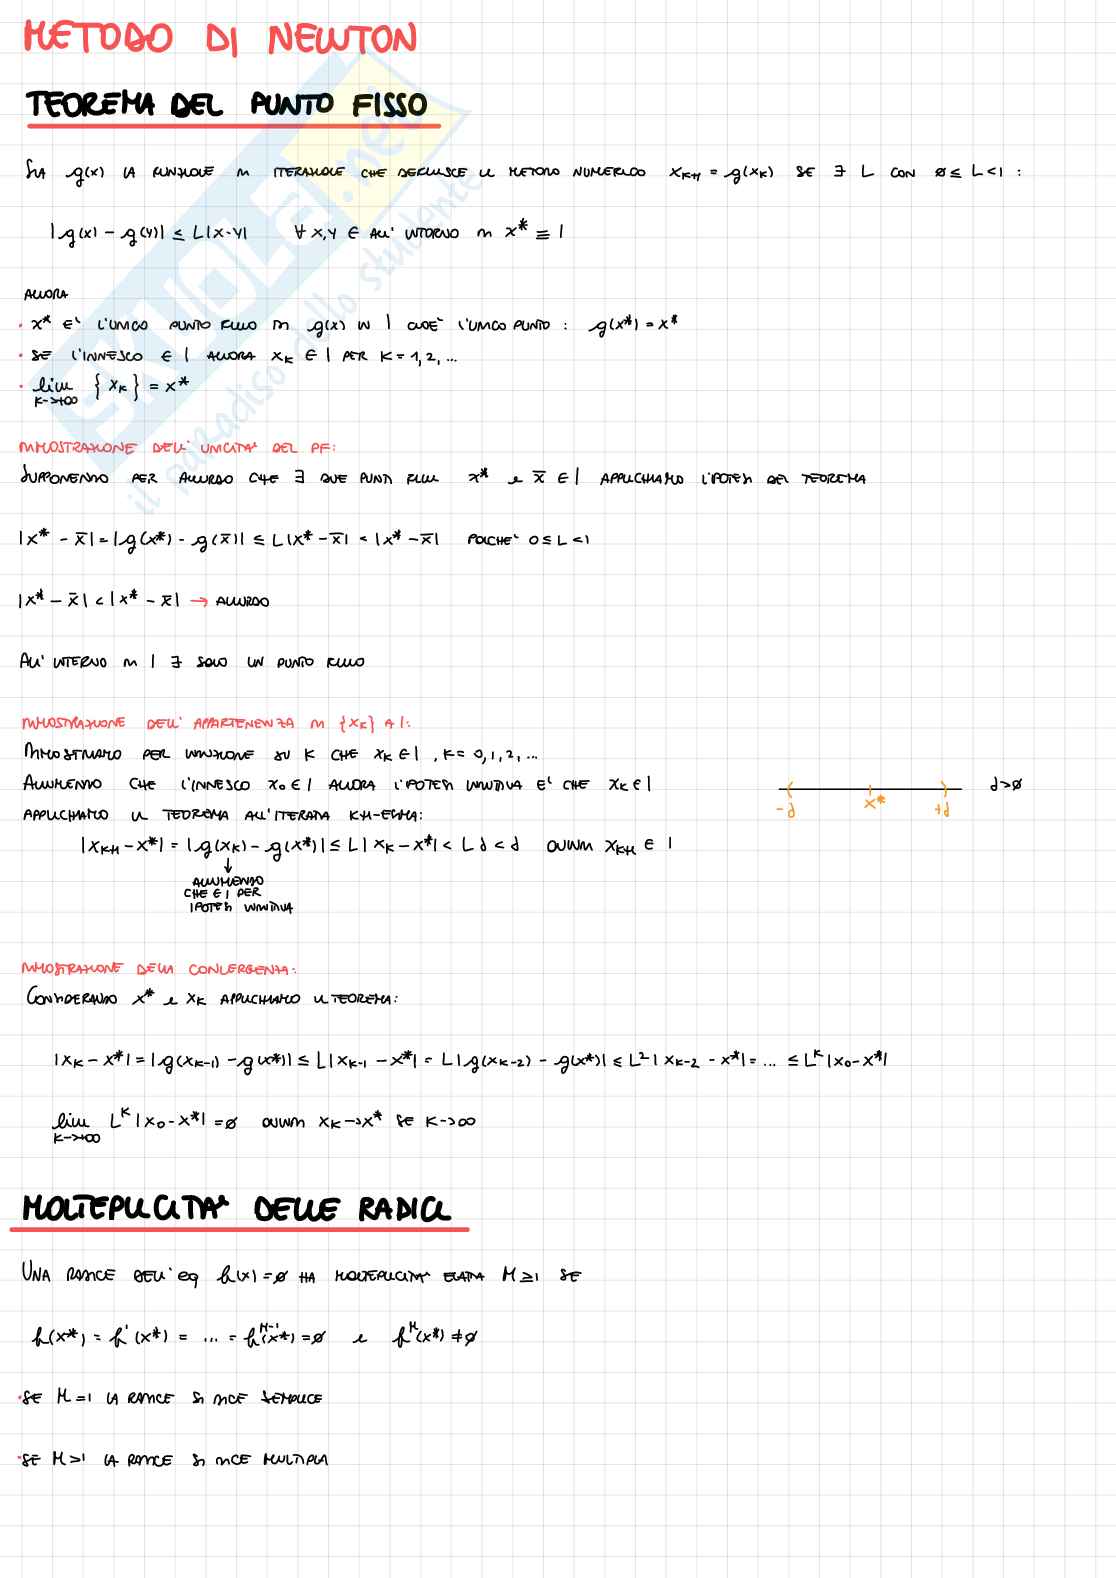 METODO DI NEWTON
TEOREMA DEL PUNTO FISSO
SIA g(x) LA FUNZIONE DI ITERAZIONE CHE DEFINISCE IL METODO NUMERICO xk+1 = g(xk) SE ∃ L CON 0 ≤ L < 1 :
|g(x) - g(y)| ≤ L|x-y| ∀ x,y ∈ ALL' INTORNO DI x* ≡ I
ALLORA
• x* E' L'UNICO PUNTO FISSO DI g(x) IN I CIOE' L'UNICO PUNTO : g(x*) = x*
• SE L'INNESCO ∈ I ALLORA xk ∈ I PER K = 1, 2, ...
• lim {xk} = x*
K->+∞
DIMOSTRAZIONE DELL' UNICITA' DEL PF:
SUPPONENDO PER ASSURDO CHE ∃ DUE PUNTI FISSI x* e x̅ ∈ I APPLICHIAMO L'IPOTESI DEL TEOREMA
|x* - x̅| = |g(x*) - g(x̅)| ≤ L|x* - x̅| < |x* - x̅| POICHE' 0 ≤ L < 1
|x* - x̅| < |x* - x̅| → ASSURDO
ALL' INTERNO DI I ∃ SOLO UN PUNTO FISSO
DIMOSTRAZIONE DELL' APPARTENENZA DI {xk} A I:
DIMOSTRIAMO PER INDUZIONE SU K CHE xk ∈ I , K = 0, 1, 2, ...
ASSUMENDO CHE L'INNESCO x0 ∈ I ALLORA L'IPOTESI INDUTTIVA E' CHE xk ∈ I
-d x* +d d>0
APPLICHIAMO IL TEOREMA ALL'ITERATA K+1-ESIMA:
|xk+1 - x*| = |g(xk) - g(x*)| ≤ L|xk - x*| < Ld < d QUINDI xk+1 ∈ I
↓
ASSUMENDO
CHE ∈ I PER
IPOTESI INDUTTIVA
DIMOSTRAZIONE DELLA CONVERGENZA:
CONSIDERANDO x* e xk APPLICHIAMO IL TEOREMA:
|xk - x*| = |g(xk-1) - g(x*)| ≤ L|xk-1 - x*| = L|g(xk-2) - g(x*)| ≤ L²|xk-2 - x*| = ... ≤ L^k|x0 - x*|
lim L^k|x0 - x*| = 0 QUINDI xk -> x* SE K -> ∞
K->+∞
MOLTEPLICITA' DELLE RADICI
UNA RADICE DELL' eq f(x) = 0 HA MOLTEPLICITA' ESATTA M ≥ 1 SE
f(x*) = f'(x*) = ... = f^M-1(x*) = 0 e f^M(x*) ≠ 0
• SE M = 1 LA RADICE SI DICE SEMPLICE
• SE M > 1 LA RADICE SI DICE MULTIPLA
SKUOLA.net
il paradiso dello studente